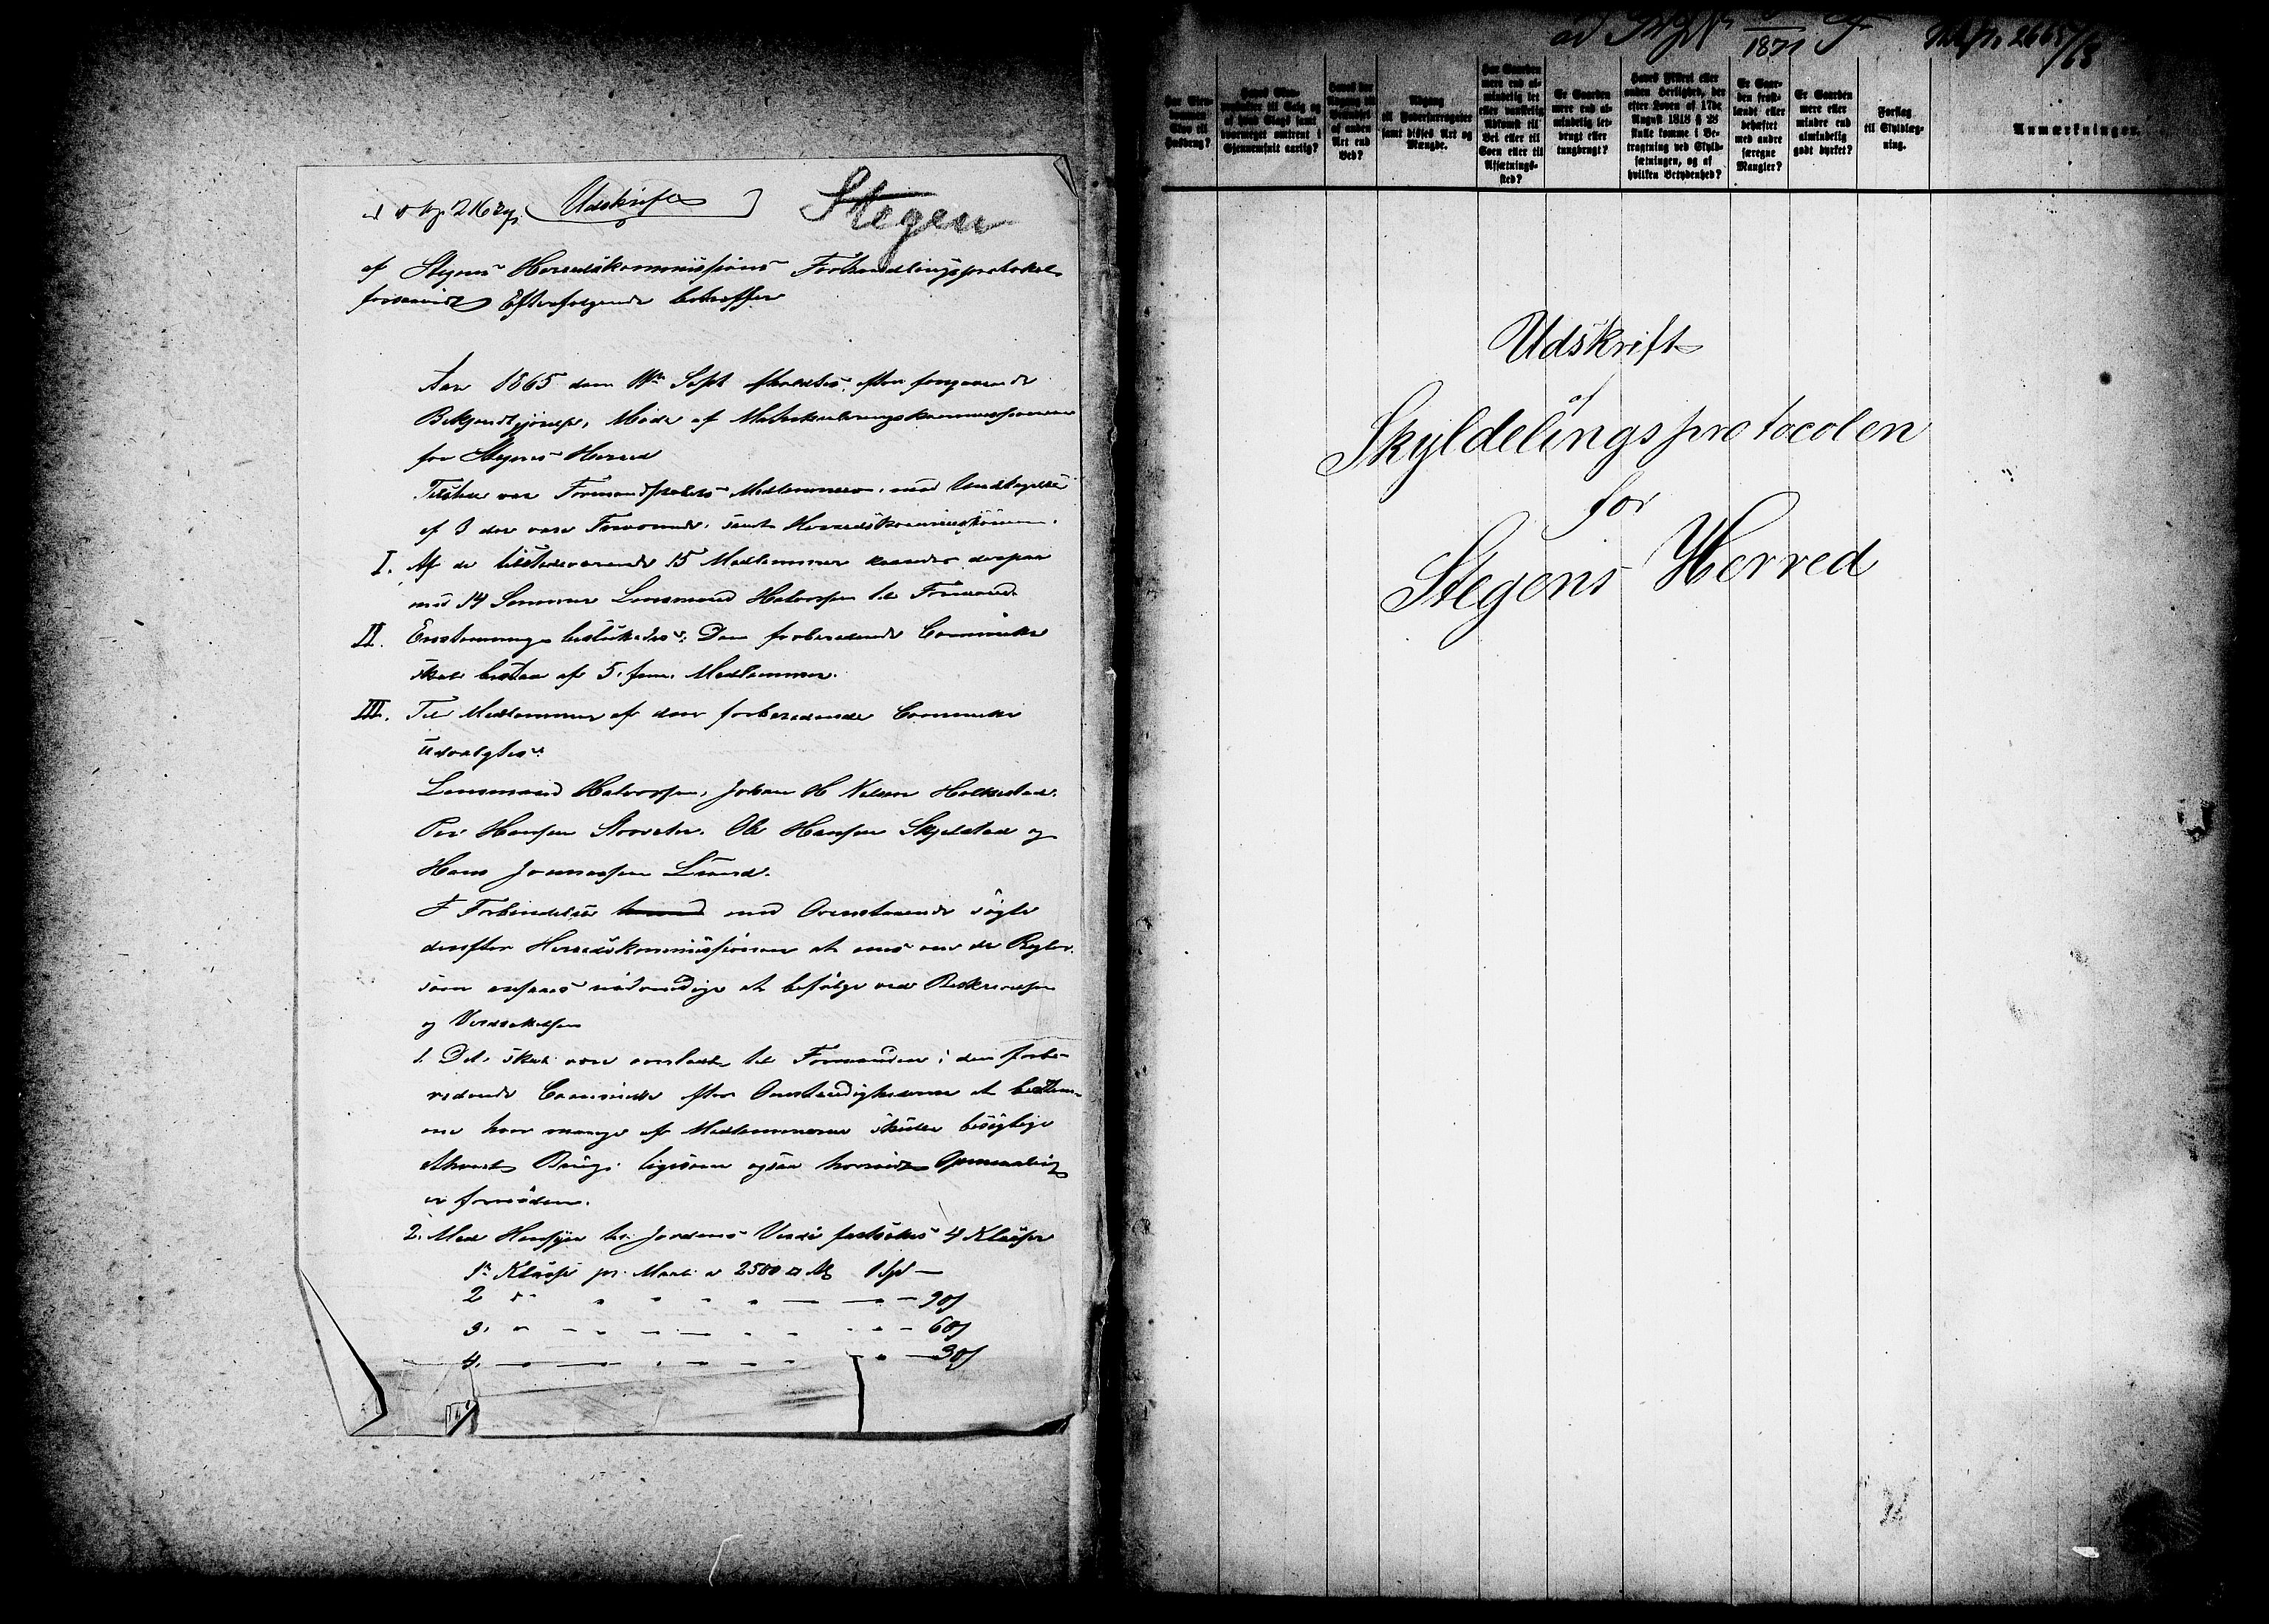 Udskrift
Stegen
af Stegens Herredskommissions Forhandlingsprotokol
forsaavidt Efterfølgende betræffer
Aar 1865 den 11te Sept afholdtes, efter foregaaende
Bekjendtgjørelse, Møde af Matrikuleringskommissionen
for Stegens Herred
Tilstede var Formandskabets Medlemmer, med Undtagelse
af 3 der vare Fraværende, samt Herredskommissionen.
I. Af de tilstedeværende 15 Medlemmer kaaredes derpaa
med 14 Stemmer Lensmand Halvorsen til Formand
II. Eenstemmig besluttedes: Den forberedende Committe
skal bestaa af 5, fem, Medlemmer.
III. Til Medlemmer af den forberedende Committe
udvalgtes:
Lensmand Halvorsen, Johan H Nelsen Holkestad,
Per Hansen Storsæter, Ole Hansen Skjelstad og
Hans Jonassen Lund.
I Forbindelse med Ovenstaaende søgte
derefter Herredskommissionen at enes om de Regler,
som ansaaes nødvendige at befølge ved Beskrivelsen
og Værdsættelsen
1. Det skal være overladt til Formanden i den forbe-
redende Committe efter Omstændighederne at bestem-
me hvor mange af Medlemmerne skulle besigtige
ethvert Brug, ligesom ogsaa hvorvidt Opmaaling
er fornøden.
2. Med Hensyn til Jordens Værdi fastsættes 4 Klasser
1ste Klasse pr. Maal a 2500 □ Al 1 Spd —
2 do " " " " — — 90 s
3. " - " - " - " - " - 60 s
4. — " — " - " - " - " — 30 s
1871
2665/68
Har Eien-
dommen
Skov til
Husbrug?
Haves Skov-
produkter til Salg og
af hvad Slags samt
hvormeget omtrent i
Gjennemsnit aarlig?
af anden
Art end
Ved?
Adgang
til Fodersurrogater
samt disses Art og
Mængde.
Har Gaarden
mere end al-
mindelig let
eller vanskelig
Adkomst til
Vei eller til
Søen eller til
Afsætnings-
sted?
Er Gaarden
mere end al-
mindelig let-
brugt eller
tungbrugt?
Haves Fiskeri eller
anden Herlighed, der
efter Loven af 17de
August 1818 § 28
skulle komme i Be-
tragtning ved Skyld-
sætningen, og af
hvilken Betydenhed?
Er Gaar-
den frost-
lændt eller
behæftet
med andre
særegne
Mangler?
Er Gaarden
mere eller
mindre end
almindelig
godt dyrket?
Forslag
til Skyldlæg-
ning.
Anmærkninger.
Udskrift
af
Skyldelingsprotocolen
for
Stegens Herred